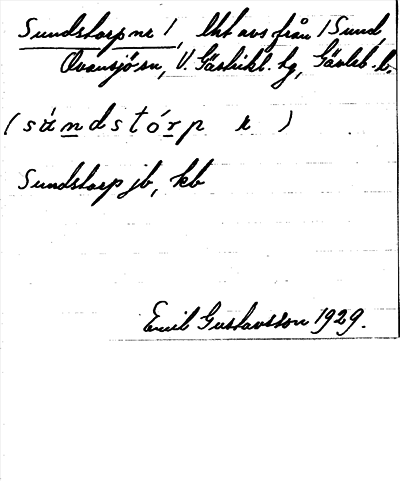 Sundstorp nr 1, lht avs från 1 Sund,
Ovansjö sn, V. Gästrikl. tg, Gävleb. l.
(súndstórp x)
Sundstorp jb, kb
Emil Gustavsson 1929.